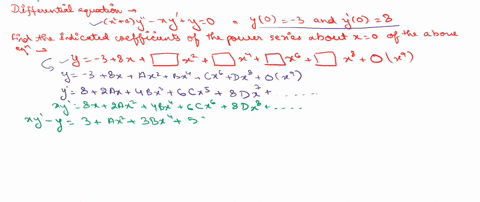 Differential equation →
(x²+5)y'' - xy' + y = 0 = y(0) = -3 and y'(0) = 8
Find the indicated coefficients of the power series about x=0 of the above
eqn →
y = -3+8x + □ x² + □ x⁴ + □ x⁶ + □ x⁸ + O(x⁹)
y = -3+8x + Ax² + Bx⁴ + Cx⁶ + Dx⁸ + O(x⁹)
y' = 8 + 2Ax + 4Bx³ + 6Cx⁵ + 8Dx⁷ + .....
xy' = 8x + 2Ax² + 4Bx⁴ + 6Cx⁶ + 8Dx⁸ + ....
xy' - y = 3 + Ax² + 3Bx⁴ + 5